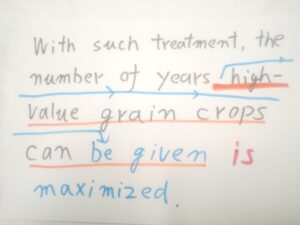 With such treatment, the
number of years high-
value grain crops
can be given is
maximized.